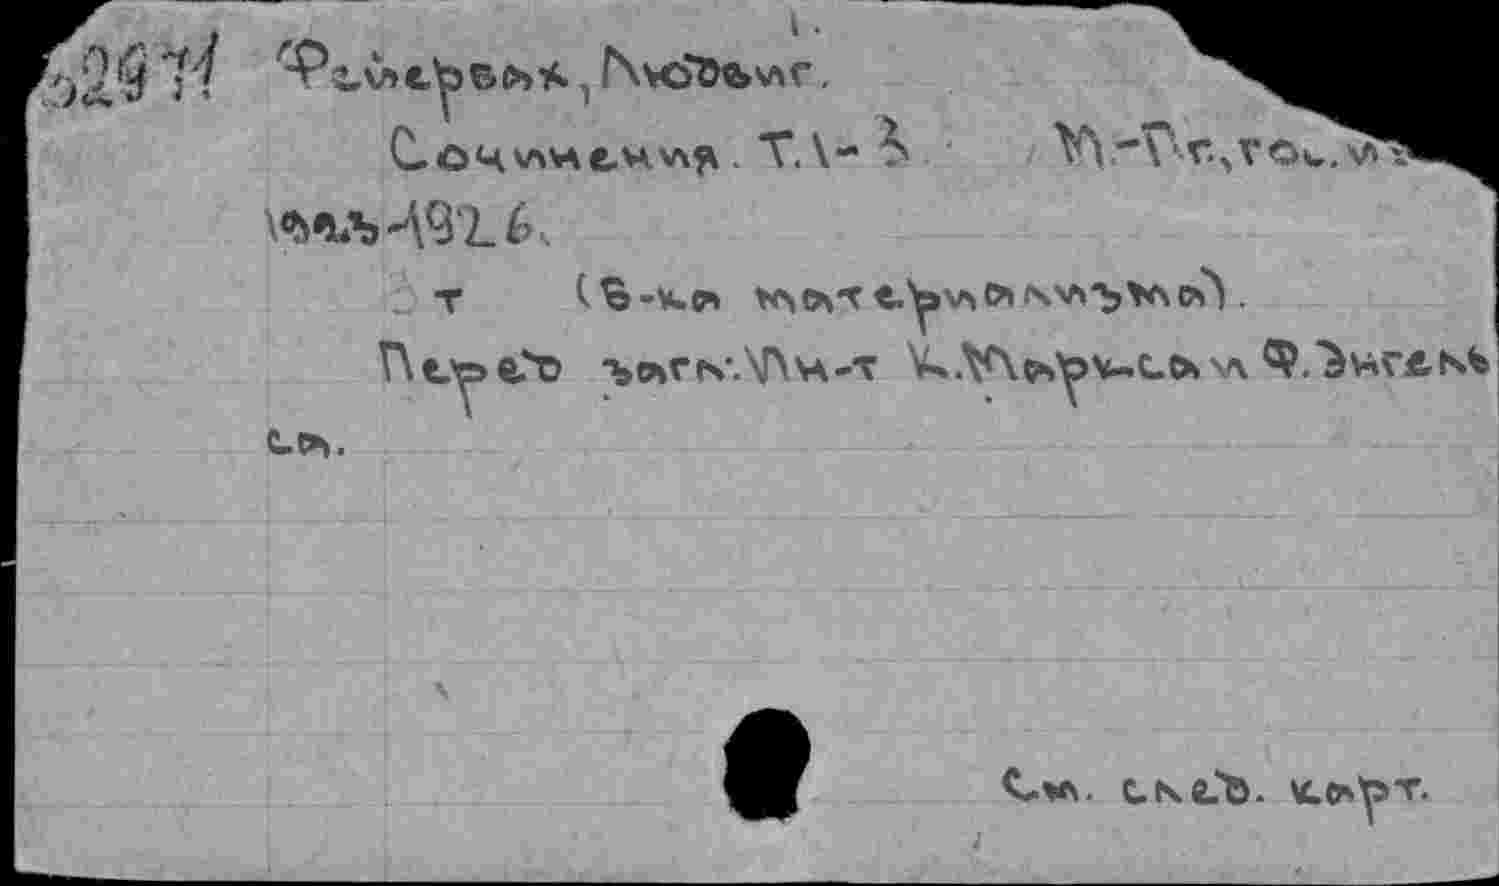 1.
32971 Фейербах, Людвиг.
Сочинения. Т.1-3 М.-Пг., гос. из
1923-1926.
3 т (Б-ка материализма).
Перед загл.: Ин-т К.Маркса и Ф.Энгель
са.
См. след. карт.